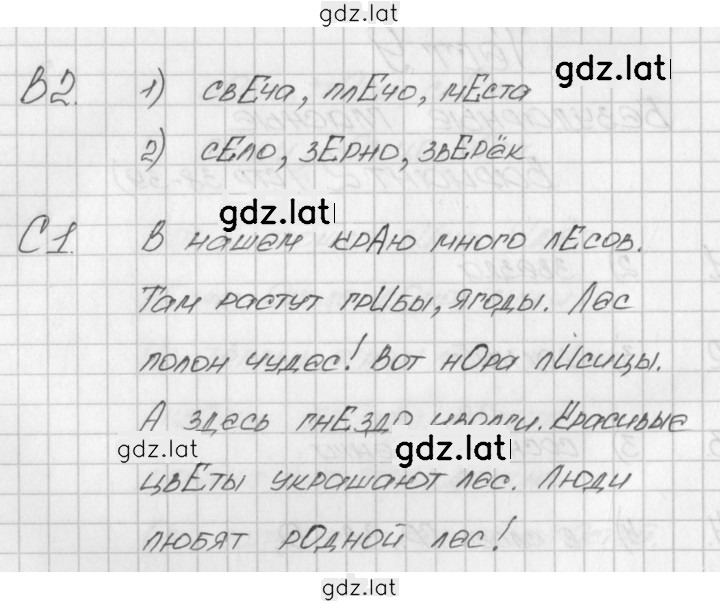 gdz.lat
В2. 1) свЕча, плЕчо, мЕста
gdz.lat
2) сЕло, зЕрно, звЕрёк
gdz.lat
С1. В нашем крАю много лЕсов.
Там растут грИбы, ягоды. Лес
полон чудес! Вот нОра лИсицы.
А здесь гнЕздо иволги. Красивые
gdz.lat
gdz.lat
цвЕты украшают лес. Люди
любят рОдной лес!
gdz.lat